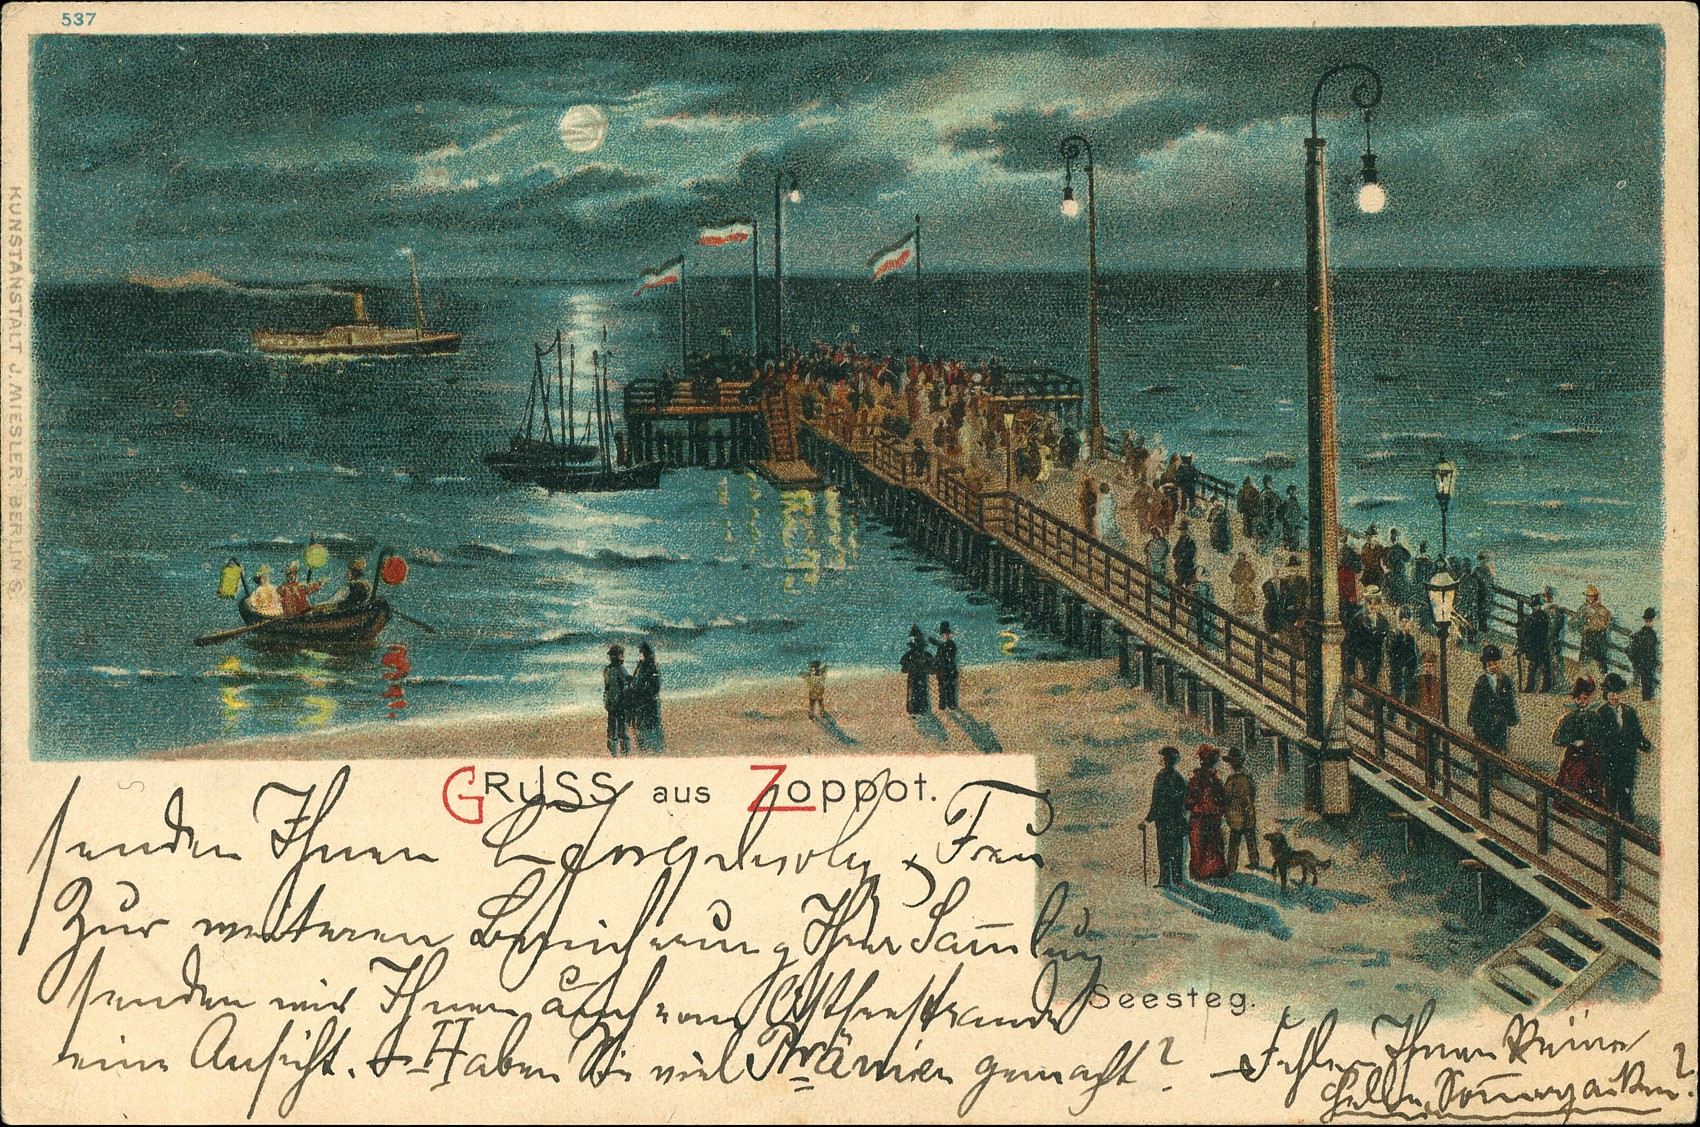 537
KUNSTANSTALT J. MIESLER, BERLIN S.
GRUSS aus Zoppot.
senden Ihnen Frau
Zur weiteren Bereicherung Ihrer Sam̅lung
senden wir Ihnen auch vom Ostseestrande
eine Ansicht. Haben Sie viel Prämien gemacht?
Seesteg.
Fehlen Ihnen keine